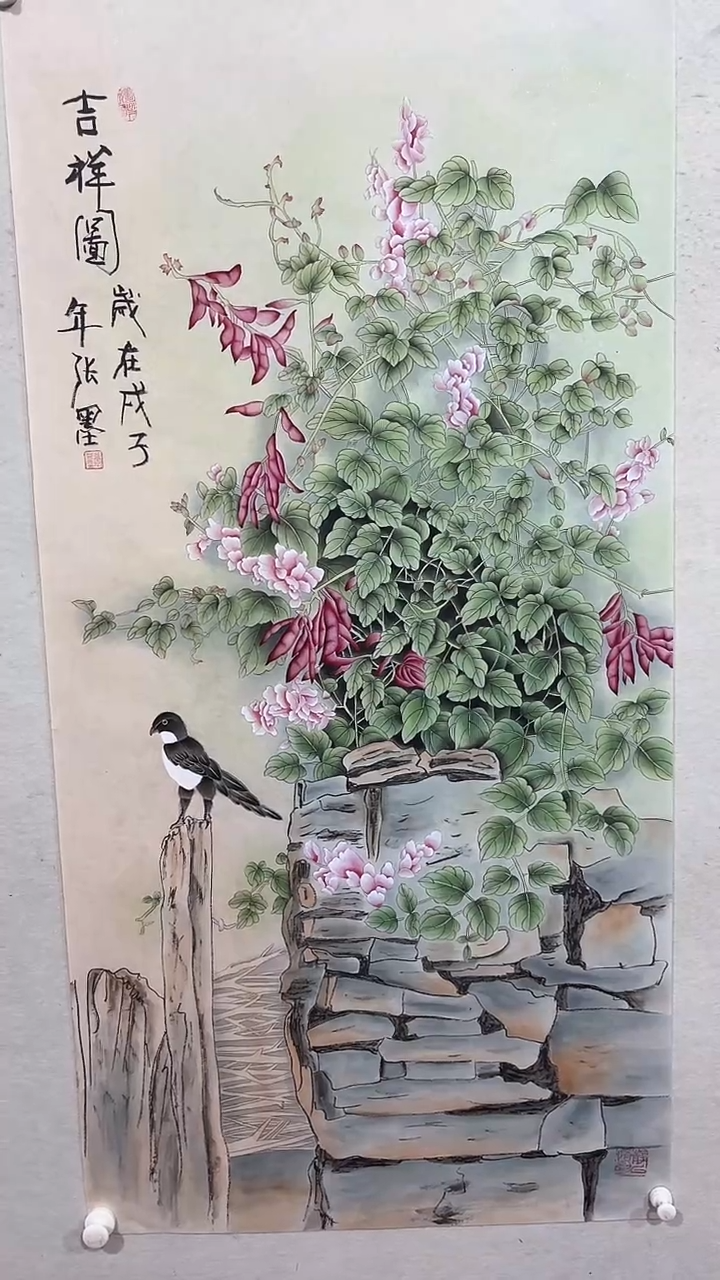 吉祥圖
歲在戊子
年張墨